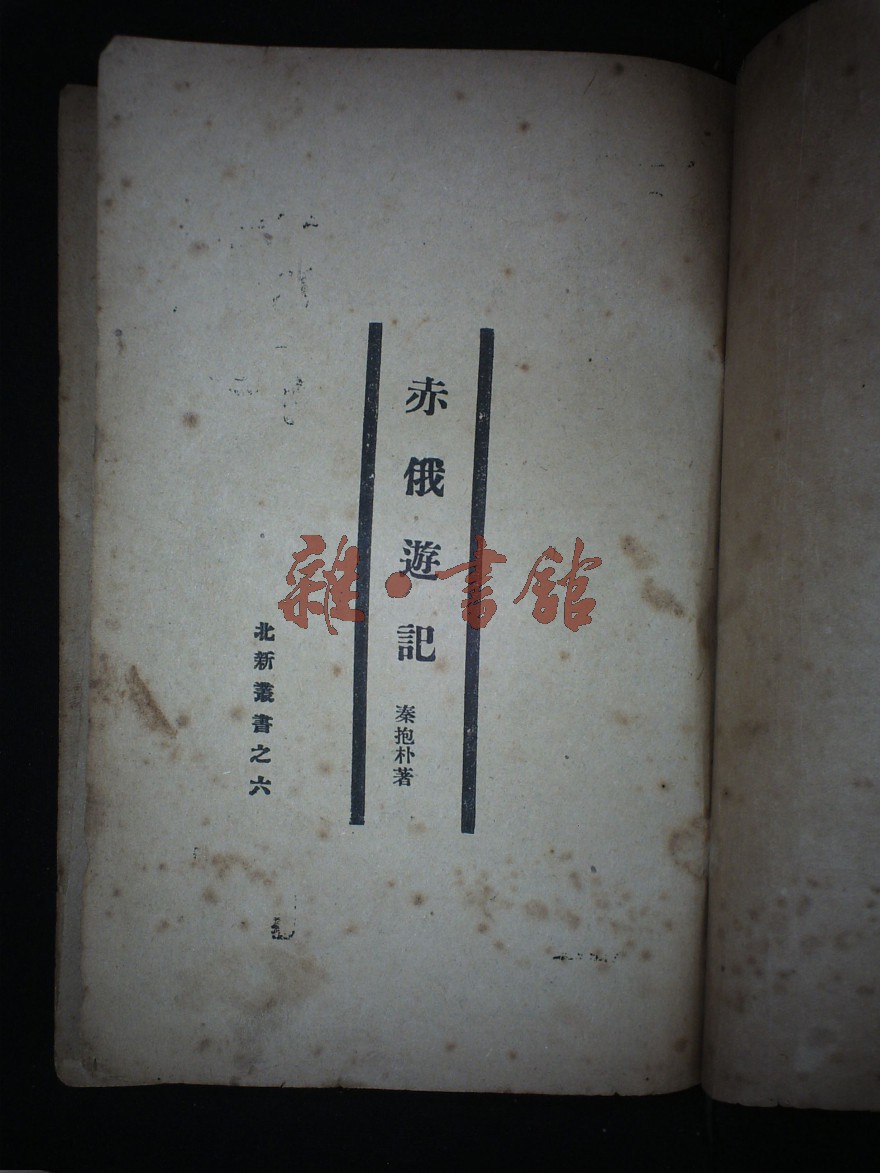 赤俄遊記
秦抱朴著
北新叢書之六
雜·書館